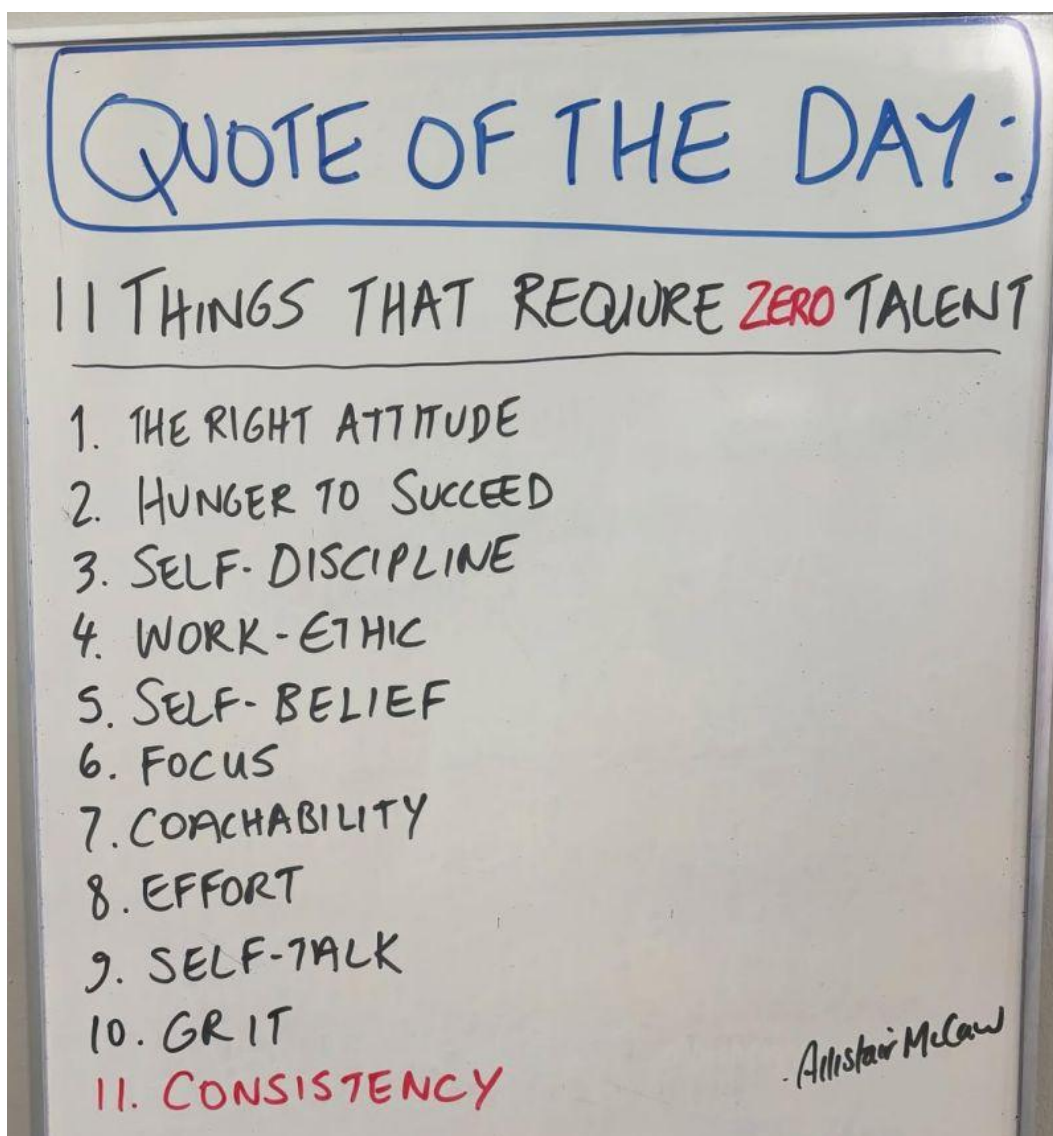 QUOTE OF THE DAY:
11 THINGS THAT REQUIURE ZERO TALENT
1. THE RIGHT ATTITUDE
2. HUNGER TO SUCCEED
3. SELF-DISCIPLINE
4. WORK-ETHIC
5. SELF-BELIEF
6. FOCUS
7. COACHABILITY
8. EFFORT
9. SELF-TALK
10. GRIT
11. CONSISTENCY
- Allistair McCaw